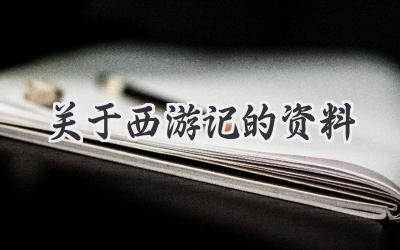 关于西游记的资料